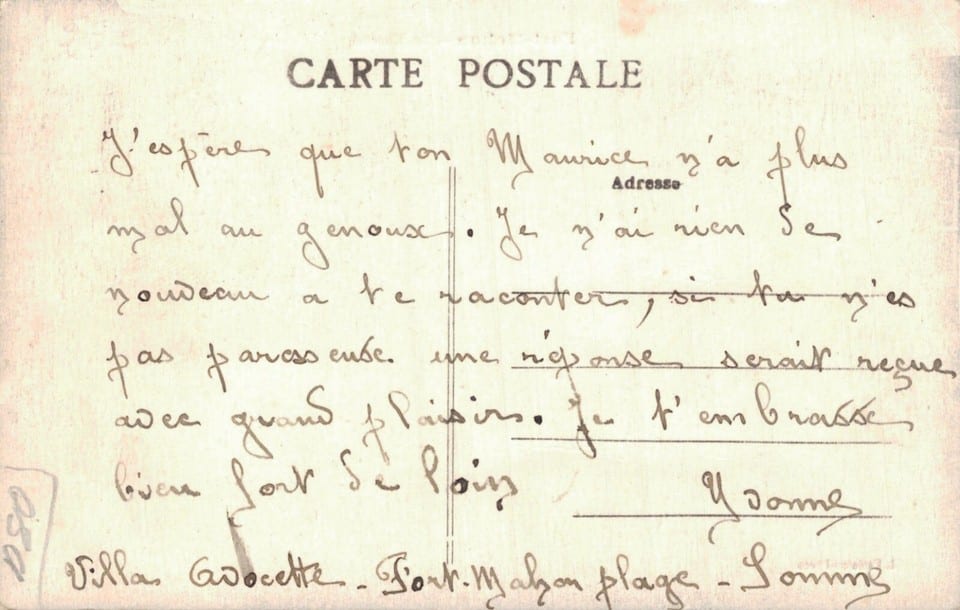 CARTE POSTALE
J'espère que ton Maurice n'a plus
Adresse
mal au genoux. Je n'ai rien de
nouveau a te raconter, si tu n'es
pas paresseuse une réponse serait reçue
avec grand plaisir. Je t'embrasse
bien fort de loin
Yvonne
Villa Avocette - Fort-Mahon plage - Somme